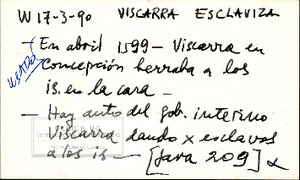 W 17-3-90 VISCARRA ESCLAVIZA
— En abril 1599 — Viscarra en
USADO
Concepción herraba a los
is. en la cara —
— Hay auto del gob. interino
Viscarra dando x esclavos
a los is — [Jara 209]